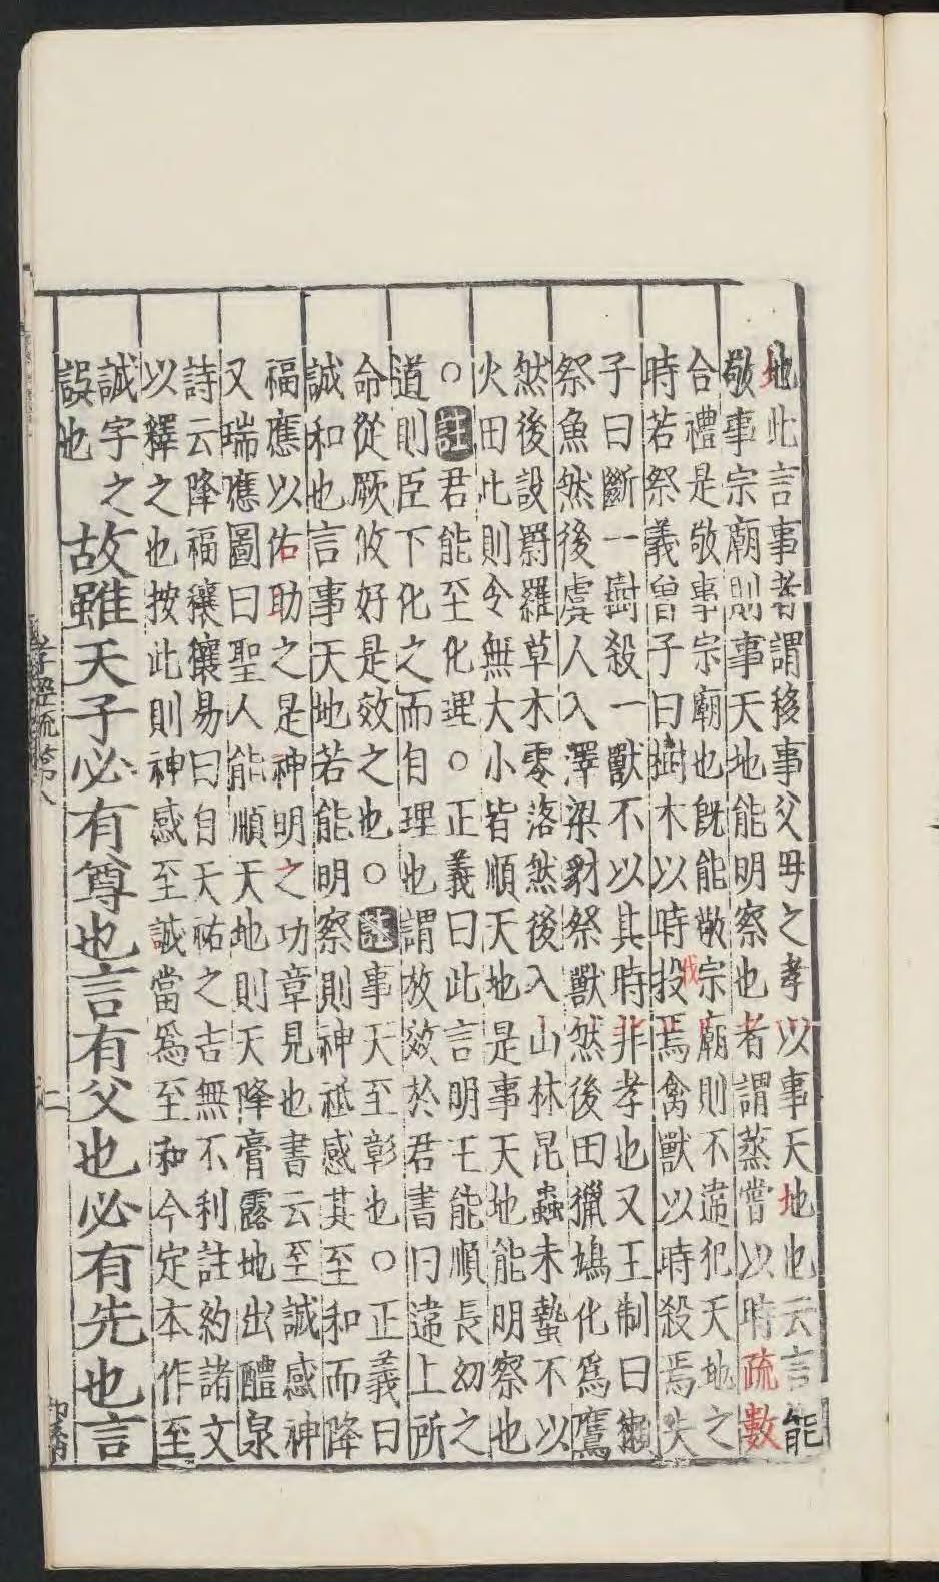 地此言事者謂移事父母之孝以事天地也云言能
敬事宗廟則事天地能明察也者謂蒸嘗以時疏數
合禮是敬事宗廟也旣能敬宗廟則不違犯天地之
時若祭義曾子曰樹木以時投焉禽獸以時殺焉夫
子曰斷一樹殺一獸不以其時非孝也又王制曰獺
祭魚然後虞人入澤梁豺祭獸然後田獵鳩化爲鷹
然後設罻羅草木零落然後入山林昆蟲未蟄不以
火田此則令無大小皆順天地是事天地能明察也
○註君能至化理○正義曰此言明王能順長幼之
道則臣下化之而自理也謂放效於君書曰違上所
命從厥攸好是效之也○註事天至彰也○正義曰
誠和也言事天地若能明察則神祗感其至和而降
福應以佑助之是神明之功章見也書云至諴感神
又瑞應圖曰聖人能順天地則天降膏露地出醴泉
詩云降福穰穰易曰自天祐之吉無不利註約諸文
以釋之也按此則神感至誠當爲至和今定本作至
誠字之
誤也
故雖天子必有尊也言有父也必有先也言
孝經疏卷八
二